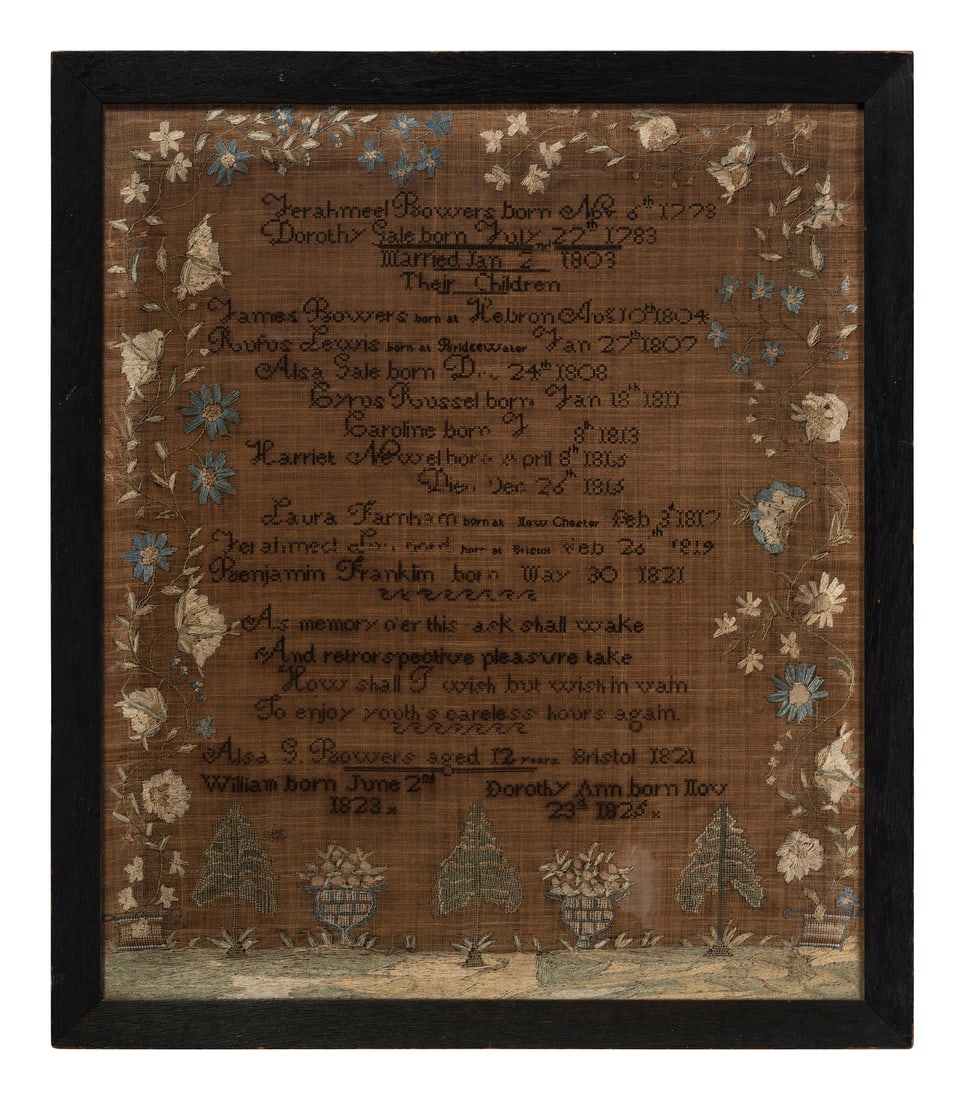 Jerahmeel Bowers born Nov 6th 1773
Dorothy Sale born July 27th 1783
Married Jan 2nd 1803
Their Children
James Bowers born at Hebron Aug 10th 1804
Rufus Lewis born at Bridgewater Jan 27th 1807
Alsa Sale born Dec 24th 1808
Cyrus Russel born Jan 18th 1811
Caroline born 8th 1813
Harriet Newel born April 8th 1815
Died Dec 26th 1815
Laura Farnham born at New Chester Feb 3d 1817
Jerahmeel born at Bristol Feb 26th 1819
Benjamin Franklin born May 30 1821
As memory o'er this ask shall wake
And retrorspective pleasure take
How shall I wish but wish in vain
To enjoy youth's careless hours again
Alsa S. Bowers aged 12 years Bristol 1821
William born June 2nd
1823
Dorothy Ann born Nov
23d 1825